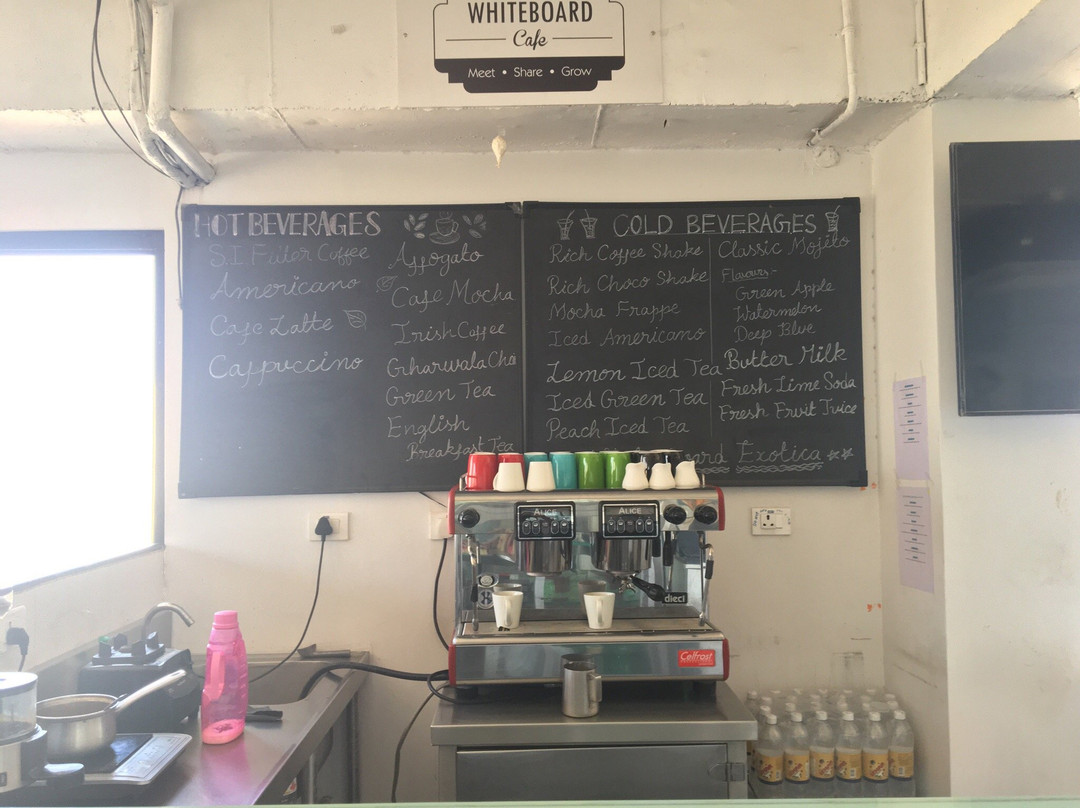 WHITEBOARD
Cafe
Meet • Share • Grow
HOT BEVERAGES
S.I. Filter Coffee
Americano
Cafe Latte
Cappuccino
Affogato
Cafe Mocha
Irish Coffee
Gharwala Chai
Green Tea
English
Breakfast Tea
COLD BEVERAGES
Rich Coffee Shake
Rich Choco Shake
Mocha Frappe
Iced Americano
Lemon Iced Tea
Iced Green Tea
Peach Iced Tea
Classic Mojito
Flavours:-
Green Apple
Watermelon
Deep Blue
Butter Milk
Fresh Lime Soda
Fresh Fruit Juice
Exotica
ALICE
ALICE
dieci
Celfrost